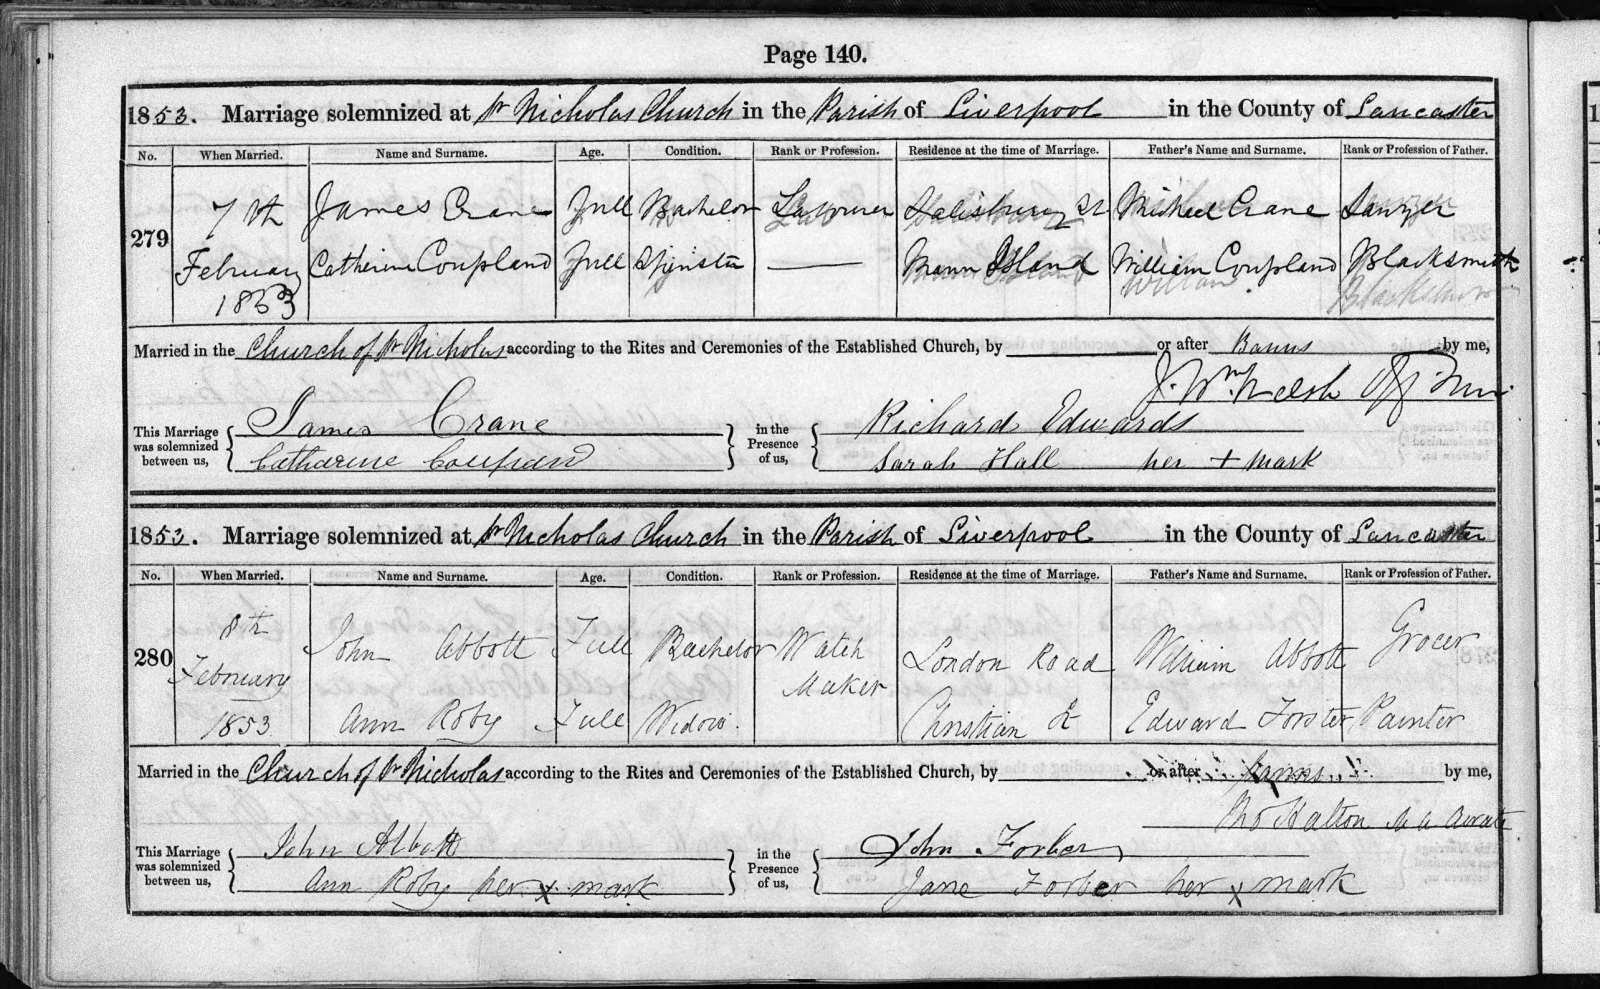 Page 140.
1853. Marriage solemnized at St Nicholas Church in the Parish of Liverpool in the County of Lancaster
No. When Married. Name and Surname. Age. Condition. Rank or Profession. Residence at the time of Marriage. Father's Name and Surname. Rank or Profession of Father.
279 7th February 1853 James Crane Full Bachelor Labourer Salisbury St Michael Crane Sawyer
Catherine Coupland Full Spinster — Mann Island William Coupland Blacksmith
Married in the Church of St Nicholas according to the Rites and Ceremonies of the Established Church, by or after Banns by me,
J. Wm. Welsh
This Marriage was solemnized between us, James Crane in the Presence of us, Richard Edwards
Catharine Sarah Hall her + mark
1853. Marriage solemnized at St Nicholas Church in the Parish of Liverpool in the County of Lancaster
No. When Married. Name and Surname. Age. Condition. Rank or Profession. Residence at the time of Marriage. Father's Name and Surname. Rank or Profession of Father.
280 8th February 1853 John Abbott Full Bachelor Watch Maker London Road William Abbott Grocer
Ann Roby Full Widow. Christian St Edward Forster Painter
Married in the Church of St Nicholas according to the Rites and Ceremonies of the Established Church, by or after Banns by me,
Tho Halton M A Curate
This Marriage was solemnized between us, John Abbott in the Presence of us, John Forber
Ann Roby her x mark Jane Forber her x mark